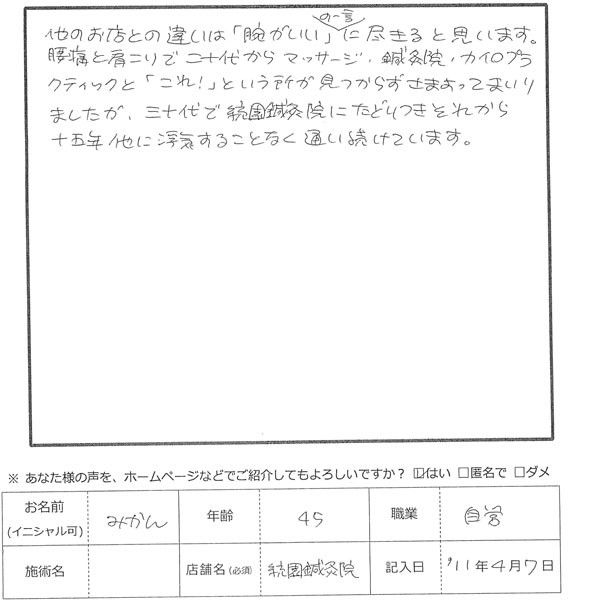 他のお店との違いは「腕がいい」の一言に尽きると思います。
腰痛と肩こりで二十代からマッサージ・鍼灸院・カイロプラ
クティックと「これ!」という所が見つからずさまよってまいり
ましたが、三十代で統園鍼灸院にたどりつきそれから
十五年他に浮気することなく通い続けています。
※ あなた様の声を、ホームページなどでご紹介してもよろしいですか? ☑はい □匿名で □ダメ
お名前 (イニシャル可) みかん 年齢 45 職業 自営
施術名 店舗名(必須) 統園鍼灸院 記入日 '11年4月7日